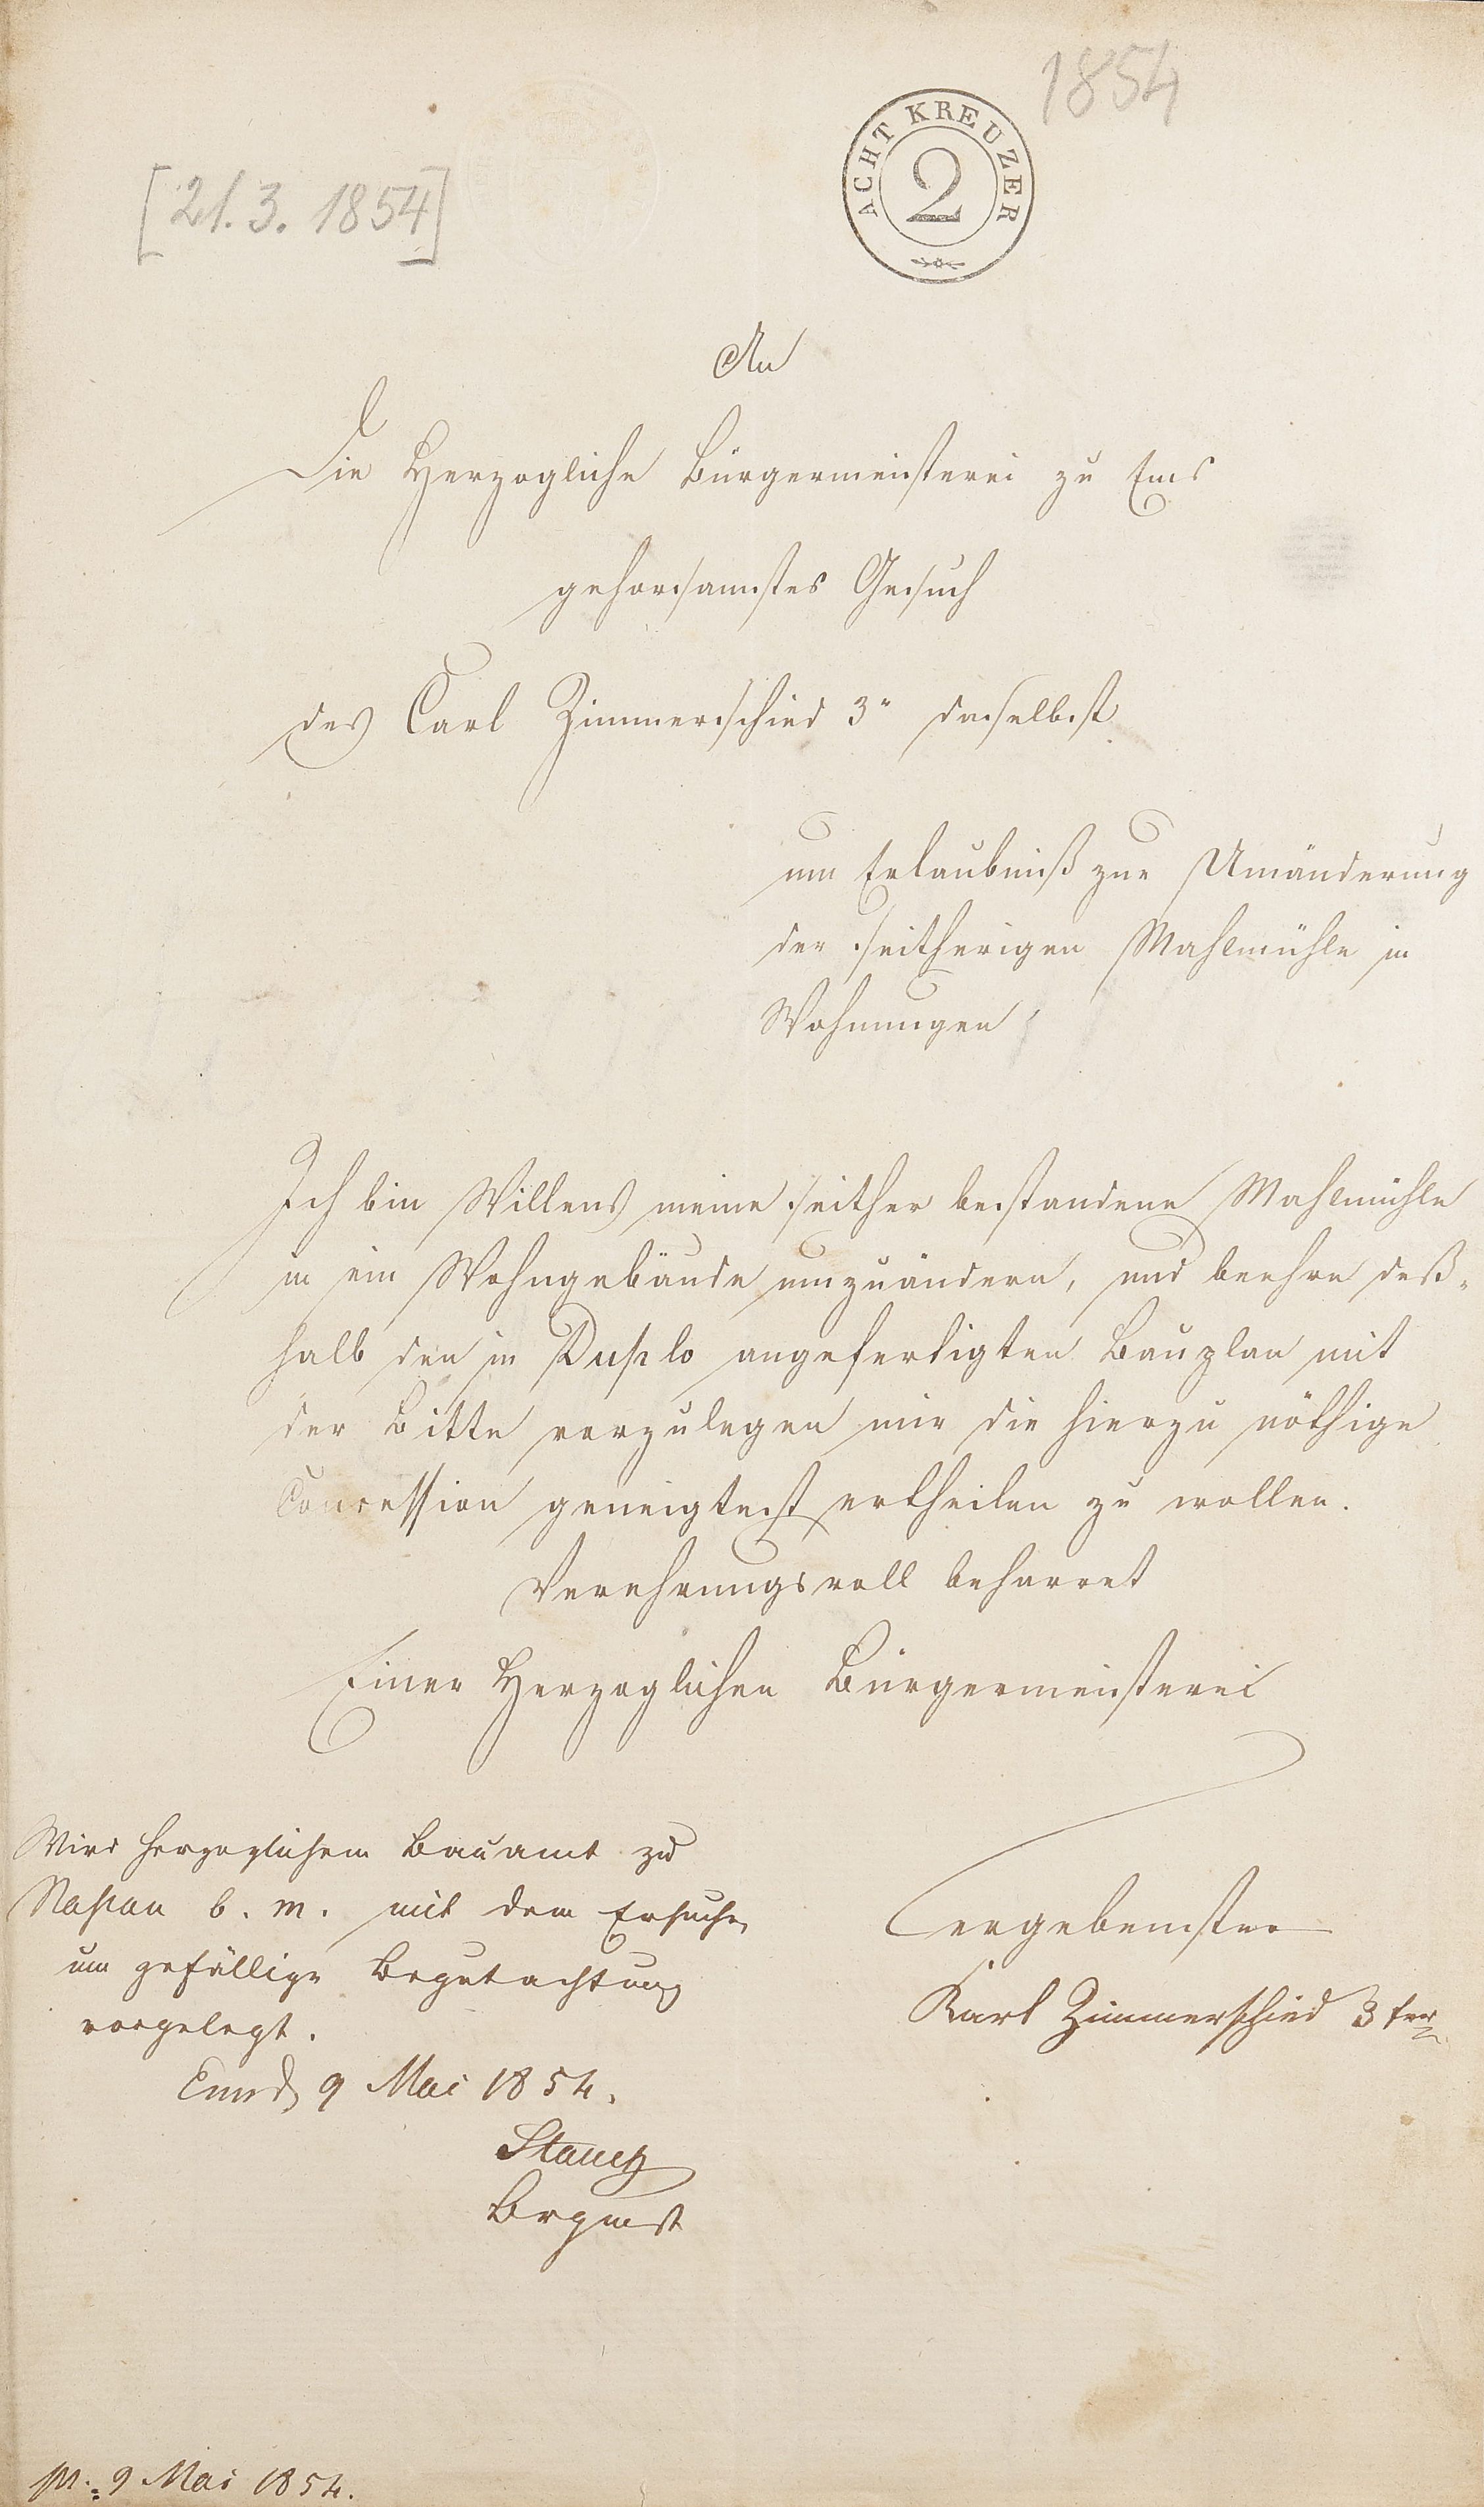 1854
[21.3.1854]
ACHT KREUZER
2
An
Die Herzogliche Bürgermeisterei zu Ems
gehorsamstes Gesuch
des Carl Zimmerschied 3r daselbst
um Erlaubniß zur Umänderung
der seitherigen Mahlmühle in
Wohnungen
Ich bin Willens meine seither bestandene Mahlmühle
in ein Wohngebäude umzuändern, und beehre deß-
halb den in Duplo angefertigten Bauplan mit
der Bitte vorzulegen mir die hierzu nöthige
Concession geneigtest ertheilen zu wollen.
Verehrungsvoll beharret
Einer Herzoglichen Bürgermeisterei
ergebenster
Karl Zimmerschied 3ter
Wird Herzoglichem Bauamt zu
Nassau b. m. mit dem Ersuchen
um gefällige Begutachtung
vorgelegt.
Ems d 9 Mai 1854.
Brgmst
pr. 9 Mai 1854.